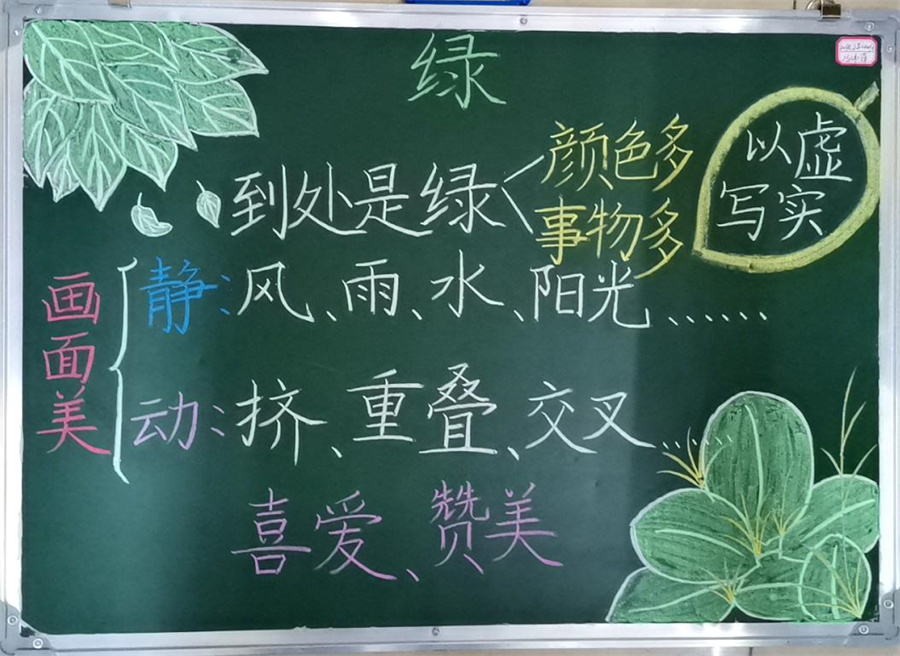 绿
到处是绿
颜色多
事物多
以虚
写实
画面美
静：风、雨、水、阳光……
动：挤、重叠、交叉……
喜爱、赞美